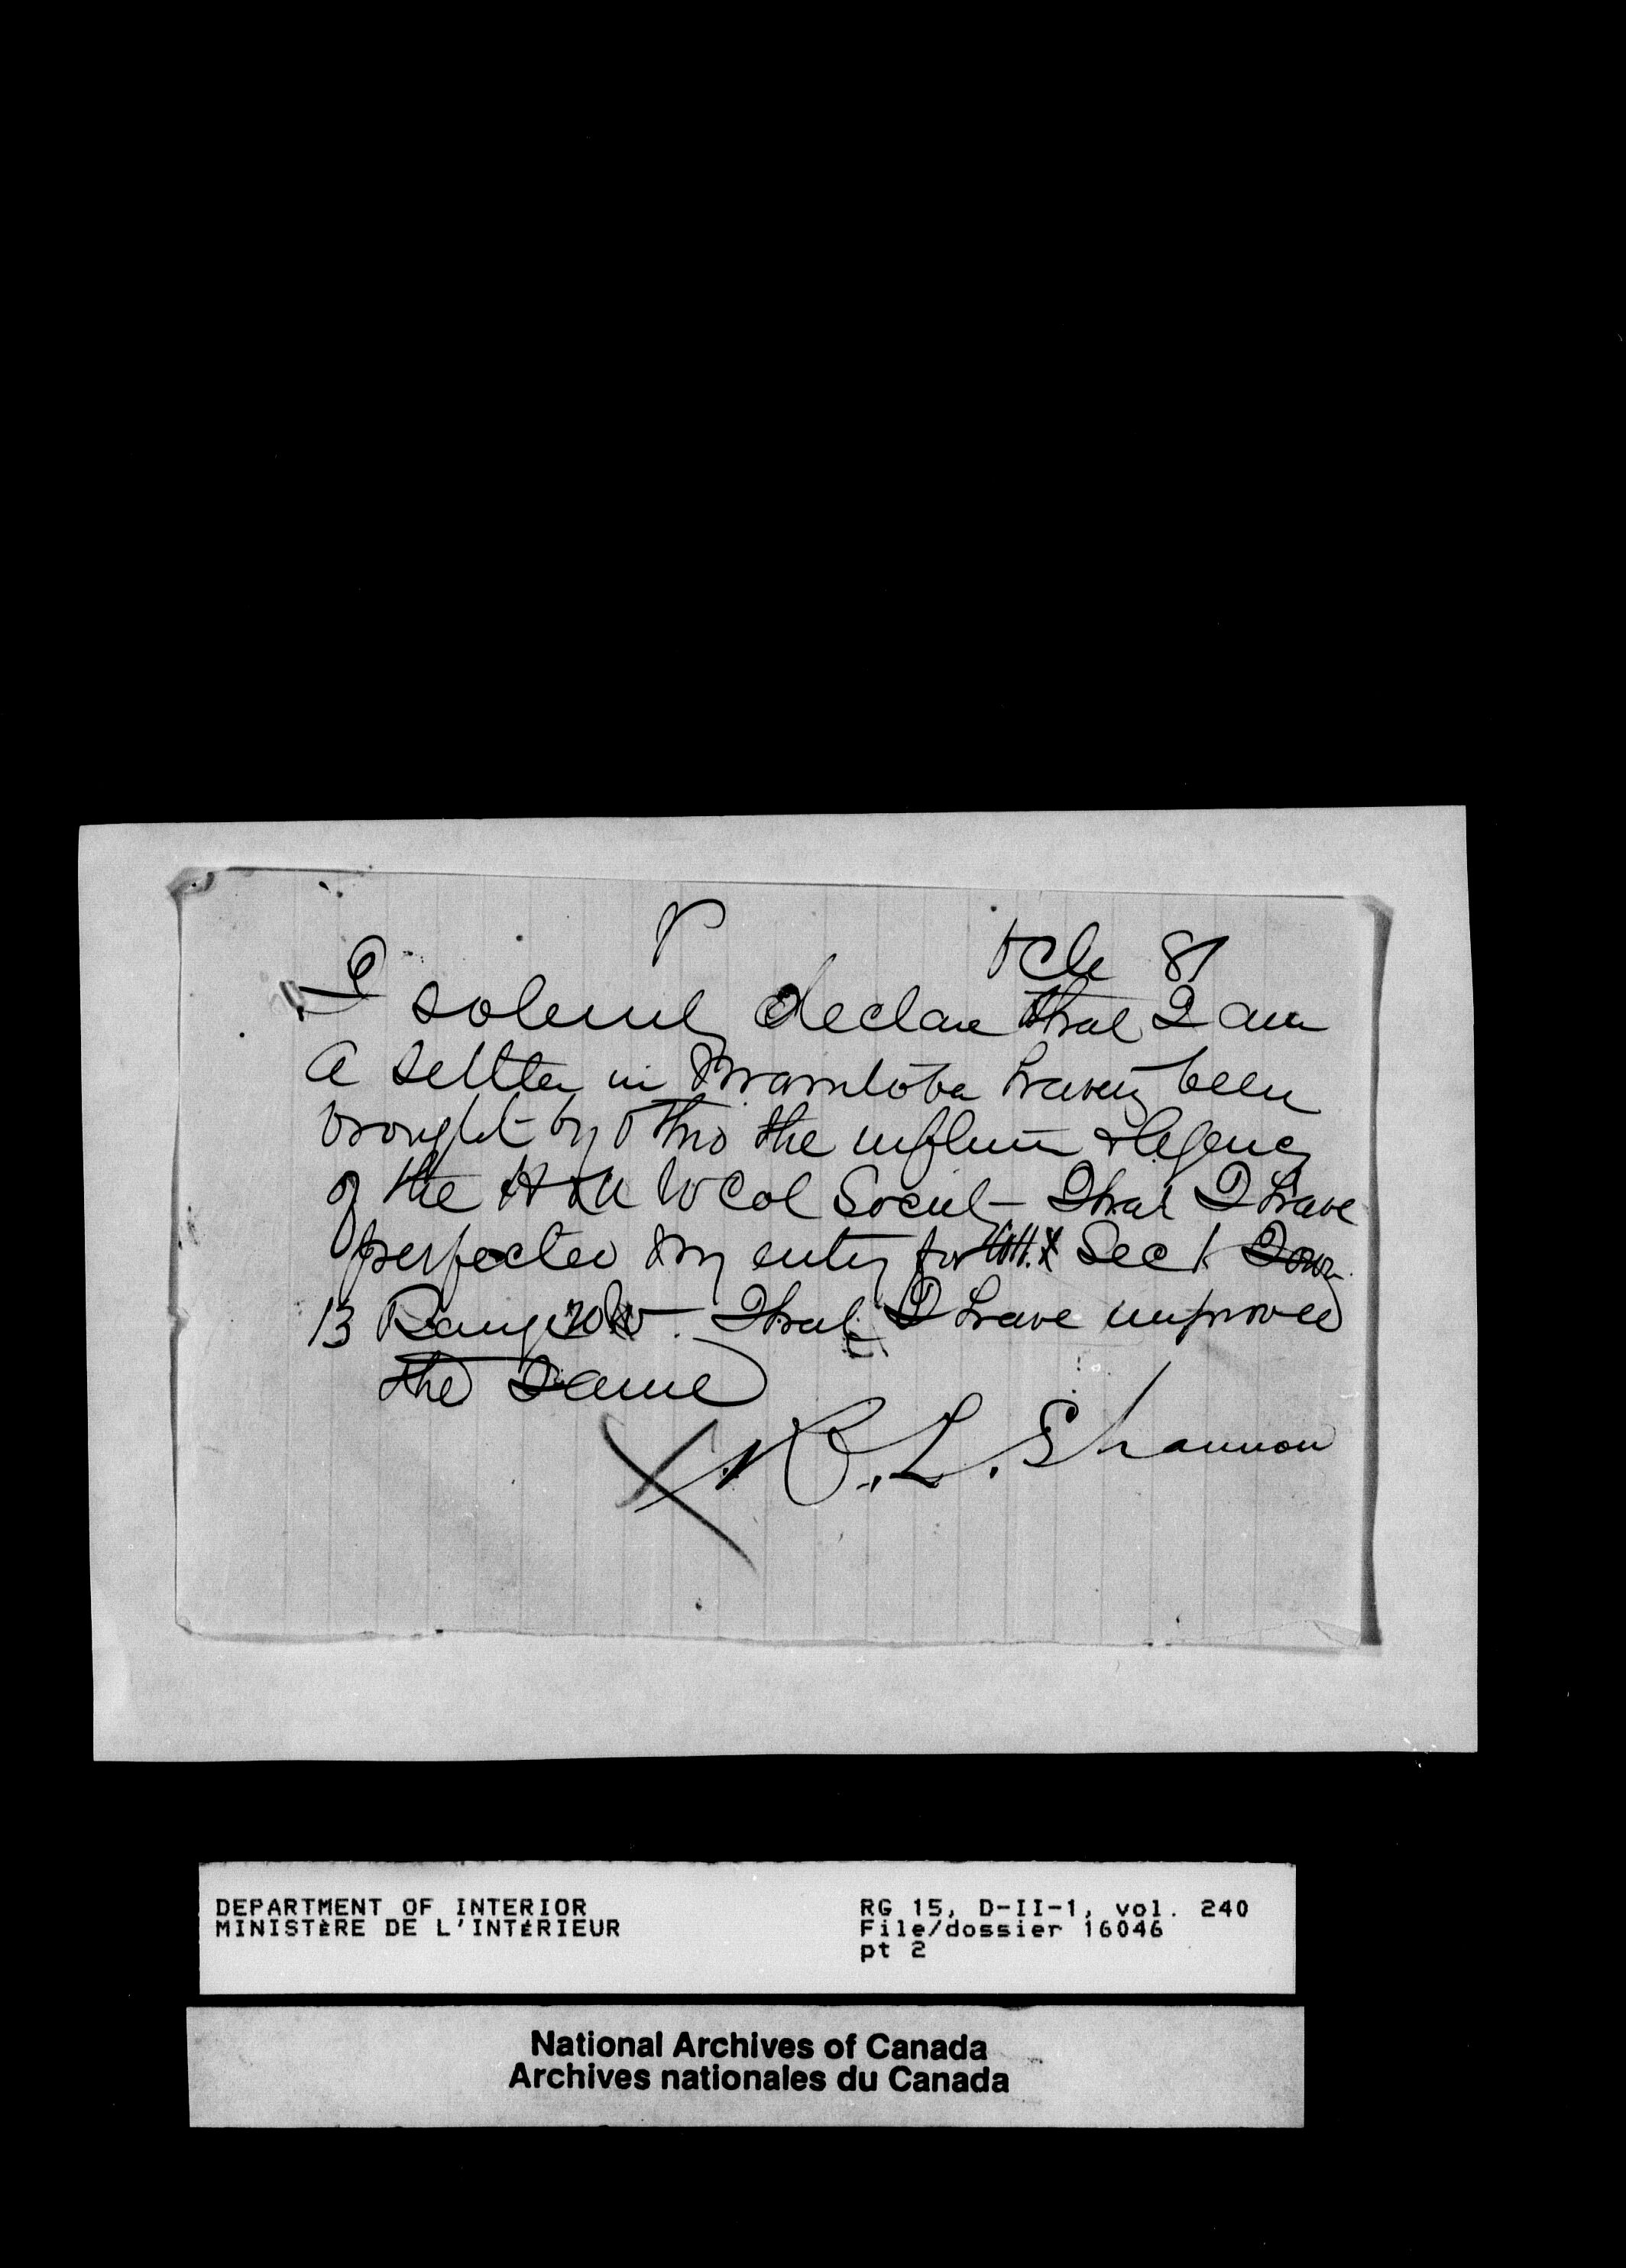 Octr 81
I solemnly declare that I am
a settler in Manitoba having been
brought by & thro the influence & Agency
of the M & N W Col Society - That I have
perfected my entry for Sec 1 Town
13 Range 20 W. That I have improved
the same
R. L. Shannon
DEPARTMENT OF INTERIOR
MINISTÈRE DE L'INTÉRIEUR
RG 15, D-II-1, vol. 240
File/dossier 16046
pt 2
National Archives of Canada
Archives nationales du Canada